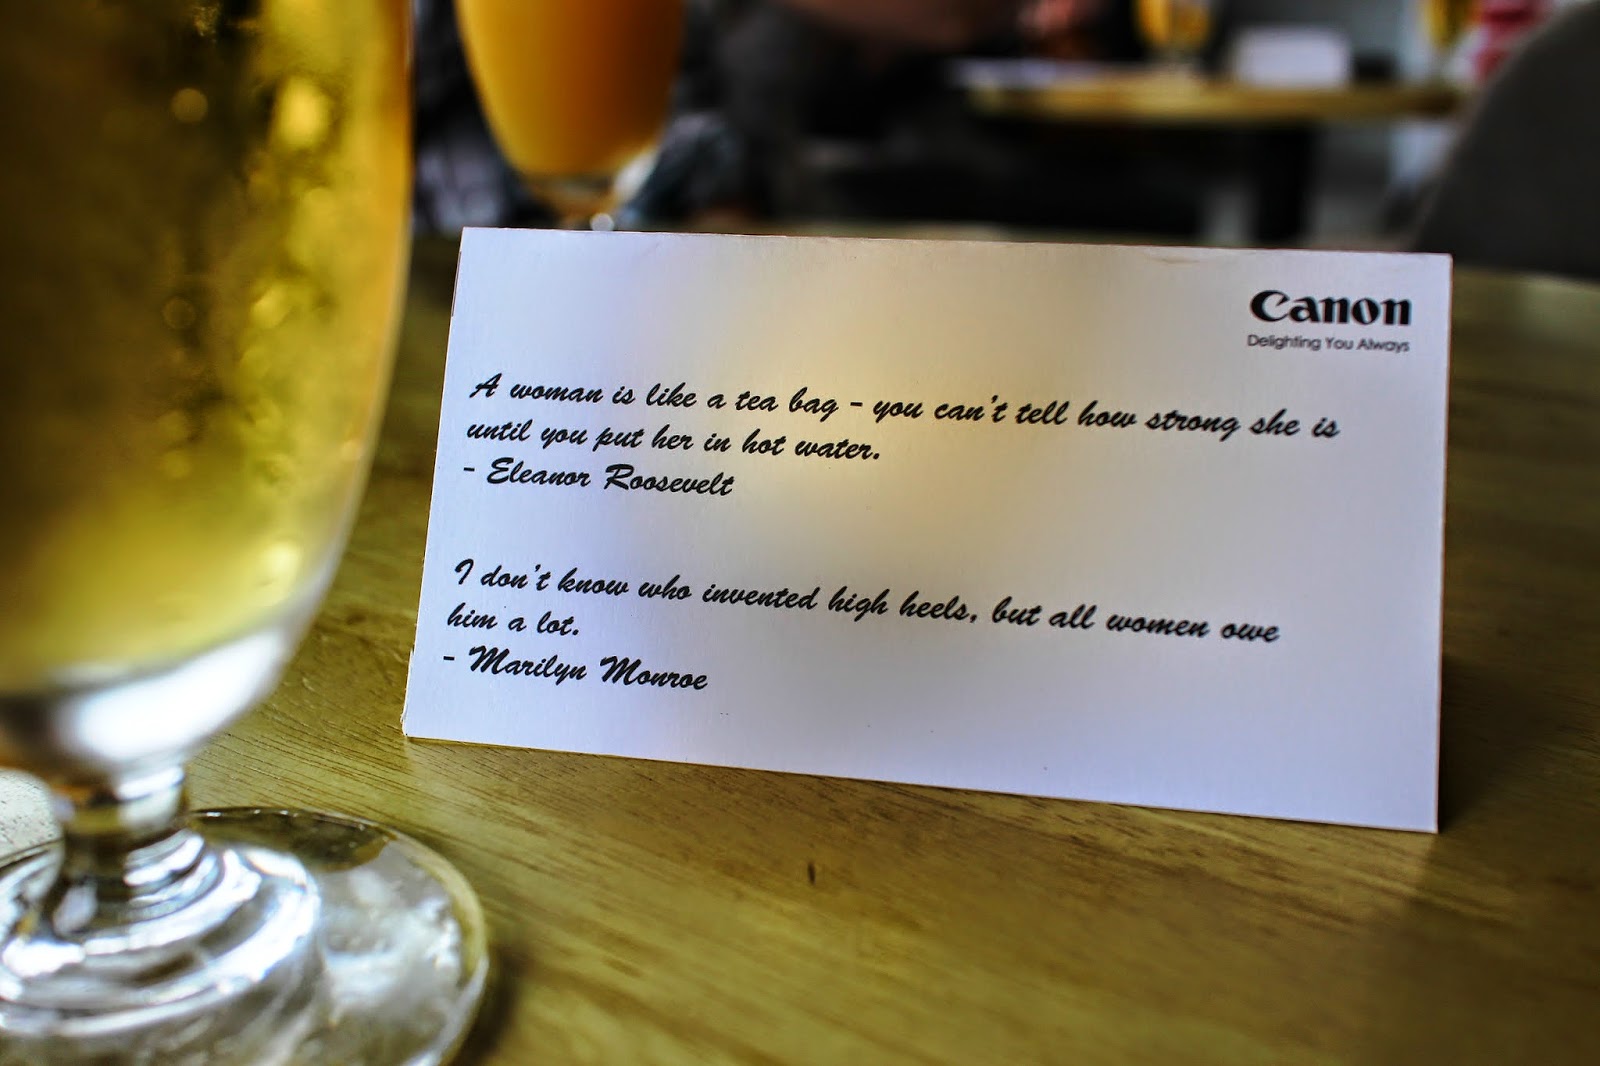 Canon
Delighting You Always
A woman is like a tea bag – you can't tell how strong she is
until you put her in hot water.
- Eleanor Roosevelt
I don't know who invented high heels, but all women owe
him a lot.
- Marilyn Monroe